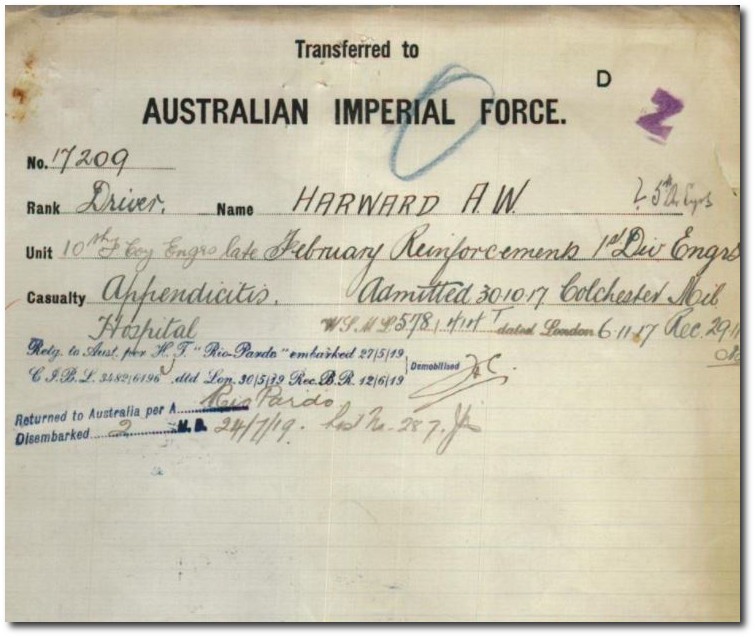 Transferred to
D
AUSTRALIAN IMPERIAL FORCE.
No. 17209
Rank Driver. Name HARWARD A.W.
Unit 10th F Coy Engrs late February Reinforcements 1st Div Engrs
Casualty Appendicitis. Admitted 30.10.17 Colchester Mil
Hospital dated London 6.11.17 Rec. 29.11
Retg. to Aust. per H.T. "Rio-Pardo" embarked 27/5/19
C I.B.L. 3482/6196 dtd Lon. 30/5/19 Rec. B.R. 12/6/19 Demobilised
Returned to Australia per A Rio Pardo
Disembarked 2 M.D. 24/7/19. List No. 287.